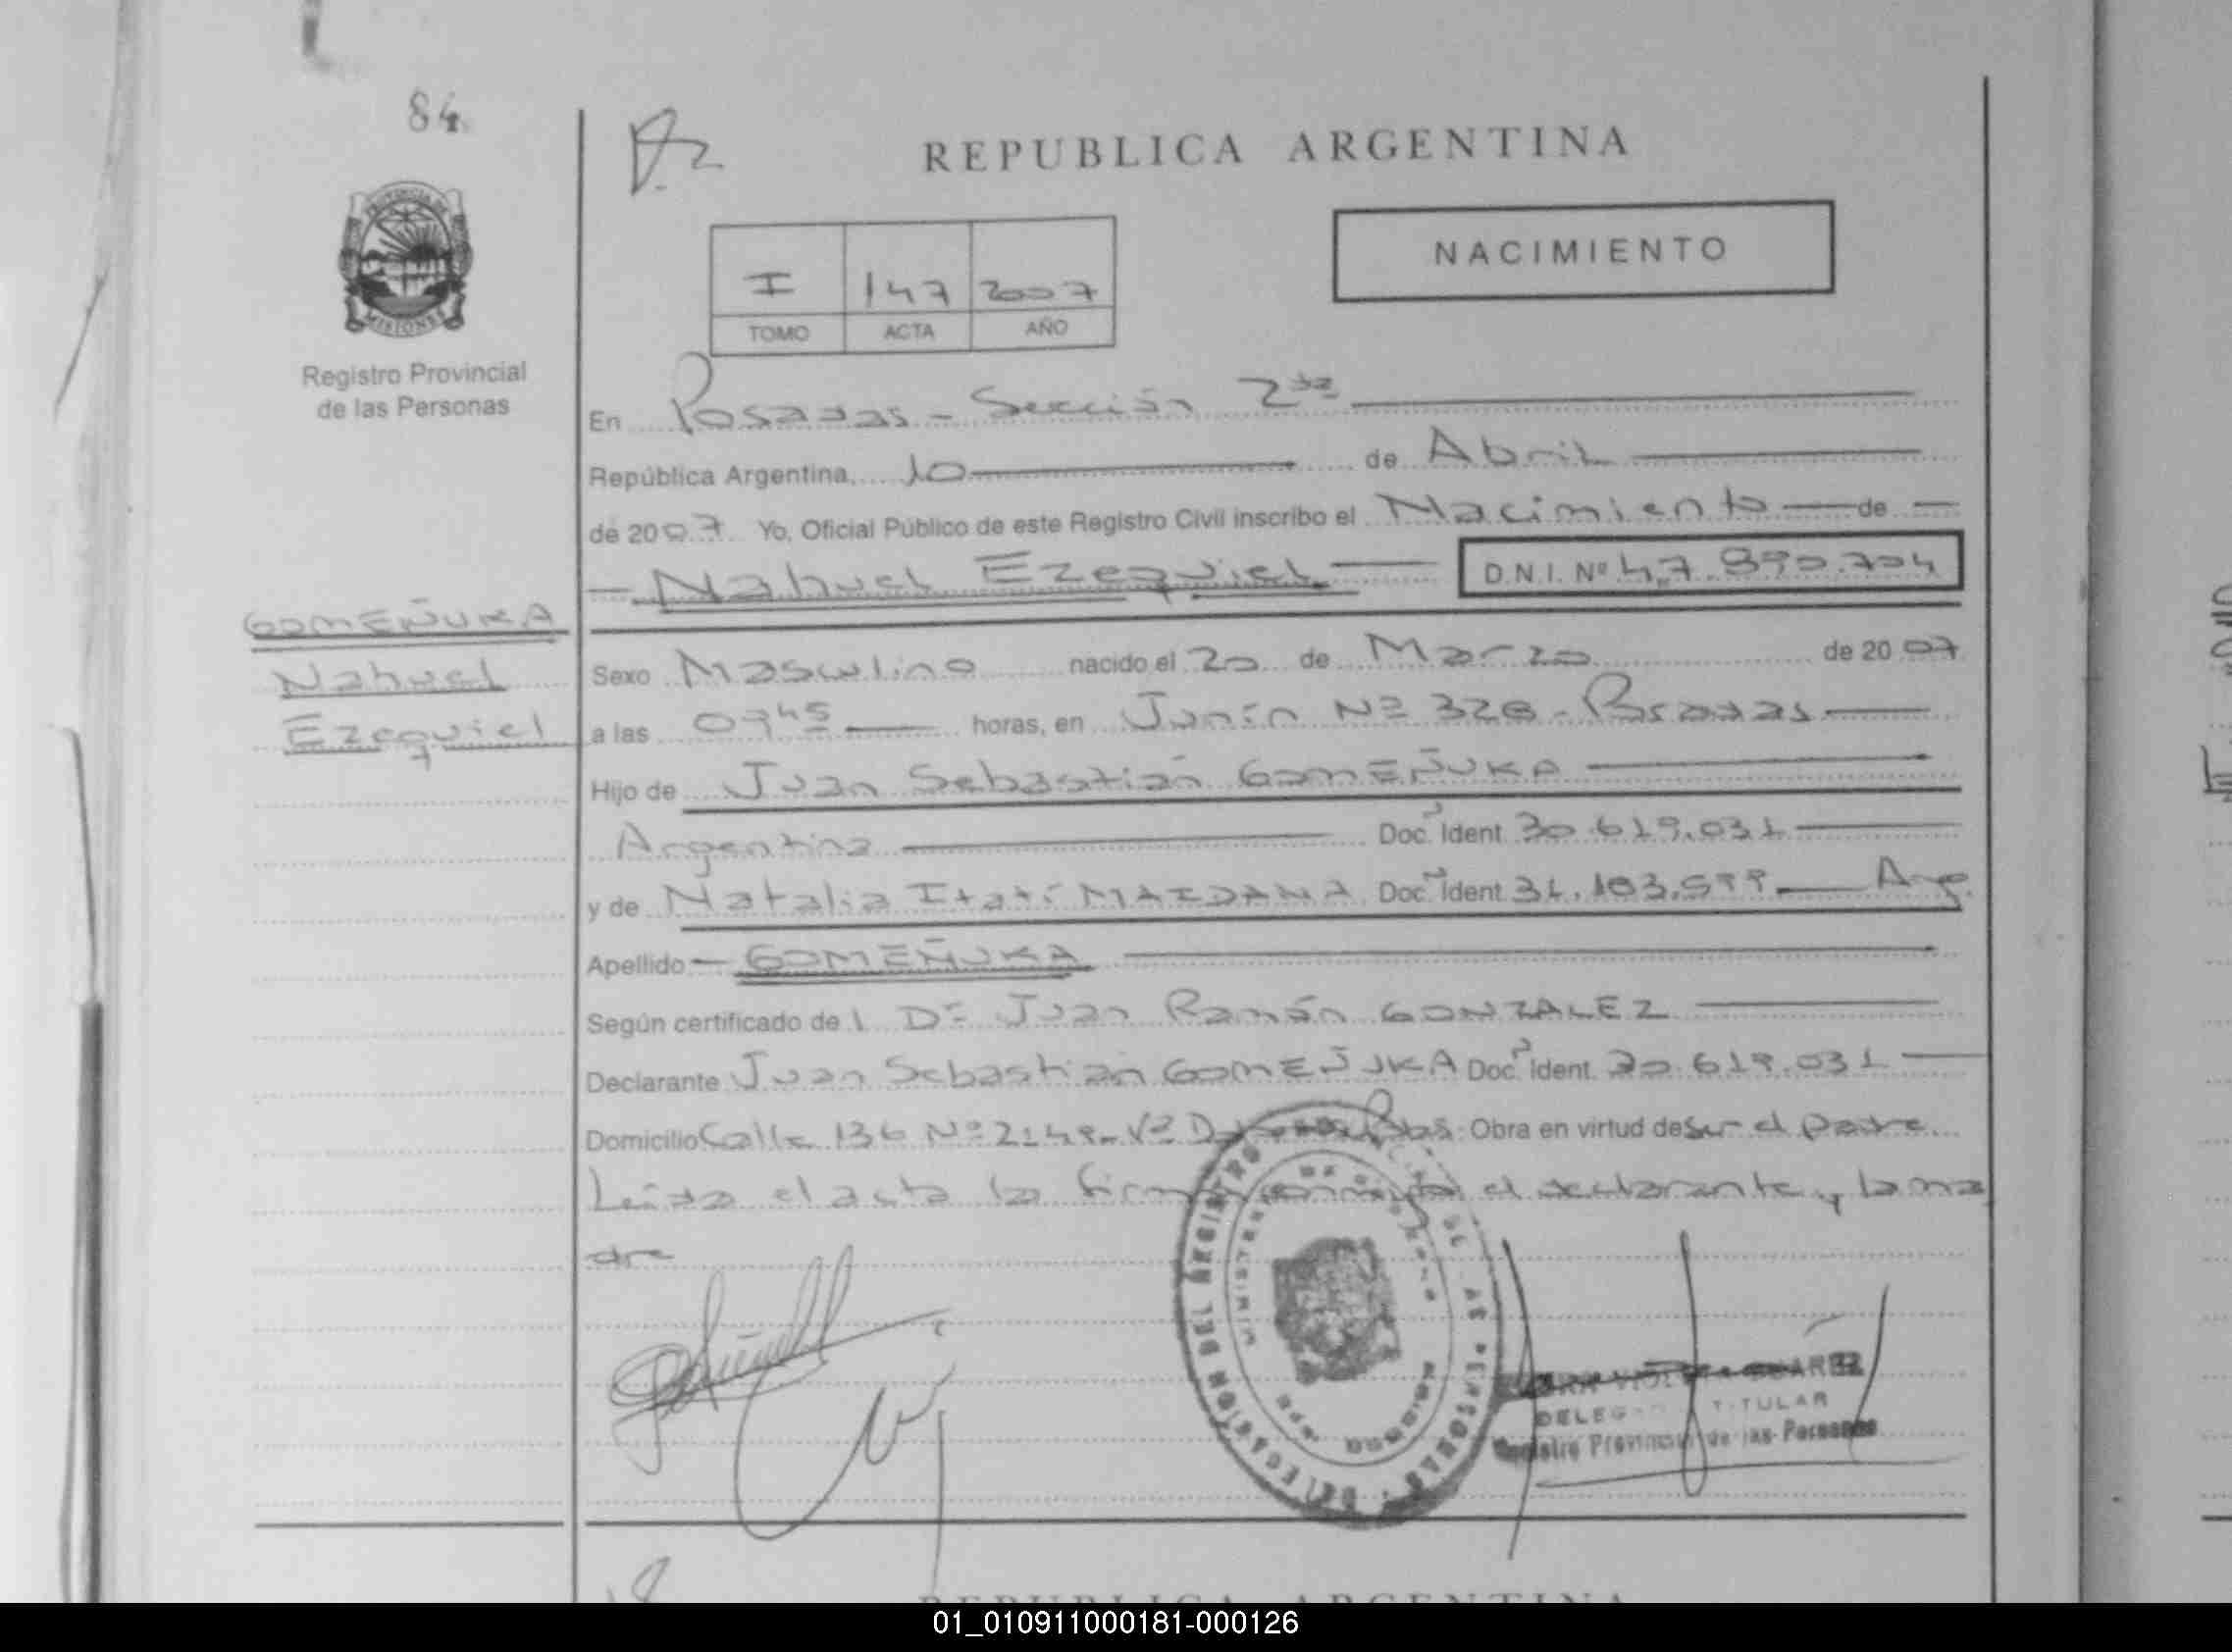 84
REPUBLICA ARGENTINA
NACIMIENTO
I 147 2007
TOMO ACTA AÑO
PROVINCIA DE
MISIONES
Registro Provincial
de las Personas
En Posadas - Sección 2da
República Argentina, 10 de Abril
de 2007 Yo, Oficial Público de este Registro Civil inscribo el Nacimiento de
Nahuel Ezequiel D.N.I. Nº 47.890.704
GOMEÑUKA
Nahuel
Ezequiel
Sexo Masculino nacido el 20 de Marzo de 2007
a las 0745 horas, en Junín Nº 328 - Posadas
Hijo de Juan Sebastián GOMEÑUKA
Argentina Doc. Ident 30.619.031
y de Natalia Itatí MAIDANA Doc. Ident 31.183.599 Arg.
Apellido GOMEÑUKA
Según certificado del Dr Juan Ramón GONZALEZ
Declarante Juan Sebastián GOMEÑUKA Doc. Ident. 30.619.031
Domicilio Calle 136 Nº 2149 - Vº Pdas. Obra en virtud de ser el padre
Leída el acta la firma el declarante y la ma
dre
DELEGACION DEL REGISTRO DE LAS PERSONAS
SUAREZ
TITULAR
Registro Provincial de las Personas
REPUBLICA ARGENTINA
01_010911000181-000126